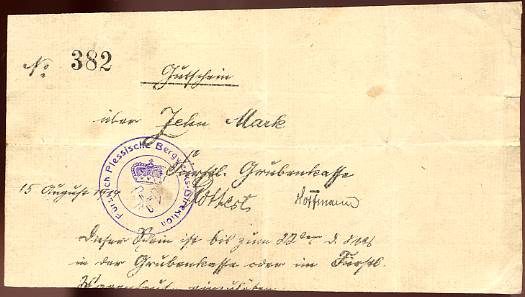 No. 382
Gutschein
über Zehn Mark
Fürstlich Plessische Bergwerks-Direktion
Fürstl. Grubenkasse
15 August 1914
Hoffmann
Dieser Schein ist bis zum 22ten d. Mts
in der Grubenkasse oder im Fürstl.
Warenhaus einzulösen